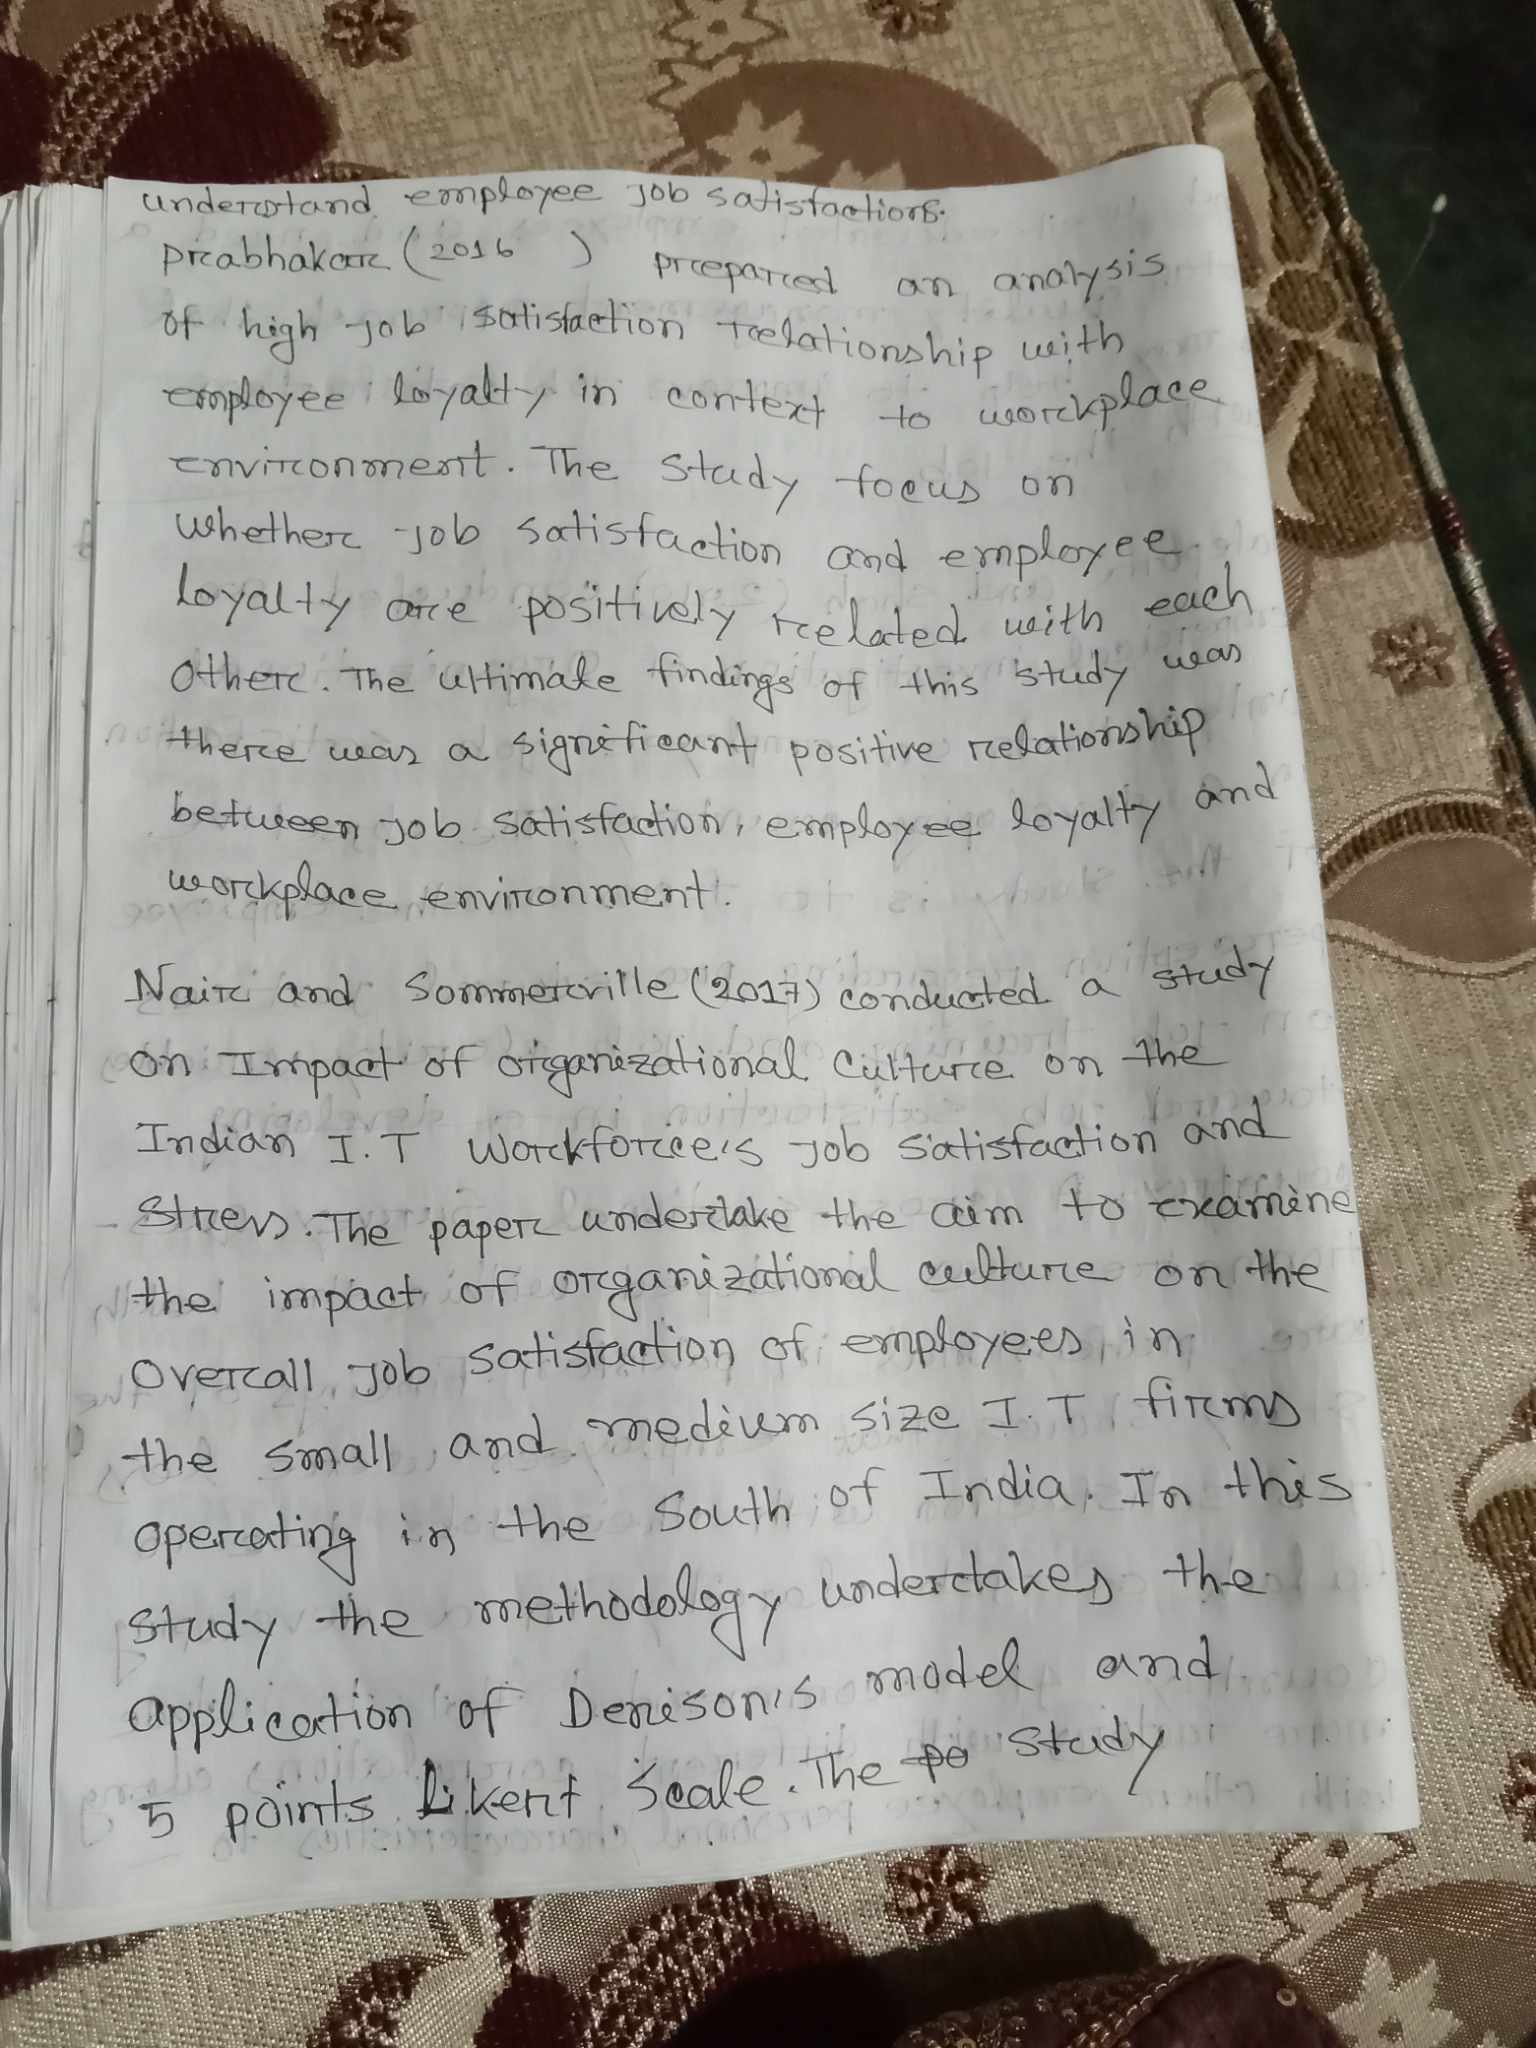 understand employee job satisfactions.
Prabhakar (2016 ) prepared an analysis
of high job satisfaction relationship with
employee loyalty in context to workplace
environment. The study focus on
whether job satisfaction and employee
loyalty are positively related with each
other. The ultimate findings of this study was
there was a significant positive relationship
between job satisfaction, employee loyalty and
workplace environment.
Nair and Sommerville (2017) conducted a study
on Impact of organizational culture on the
Indian I.T Workforce's job satisfaction and
stress. The paper undertake the aim to examine
the impact of organizational culture on the
overall job satisfaction of employees in
the small and medium size I.T firms
operating in the South of India. In this
study the methodology undertakes the
application of Denison's model and
5 points Likert Scale. The study